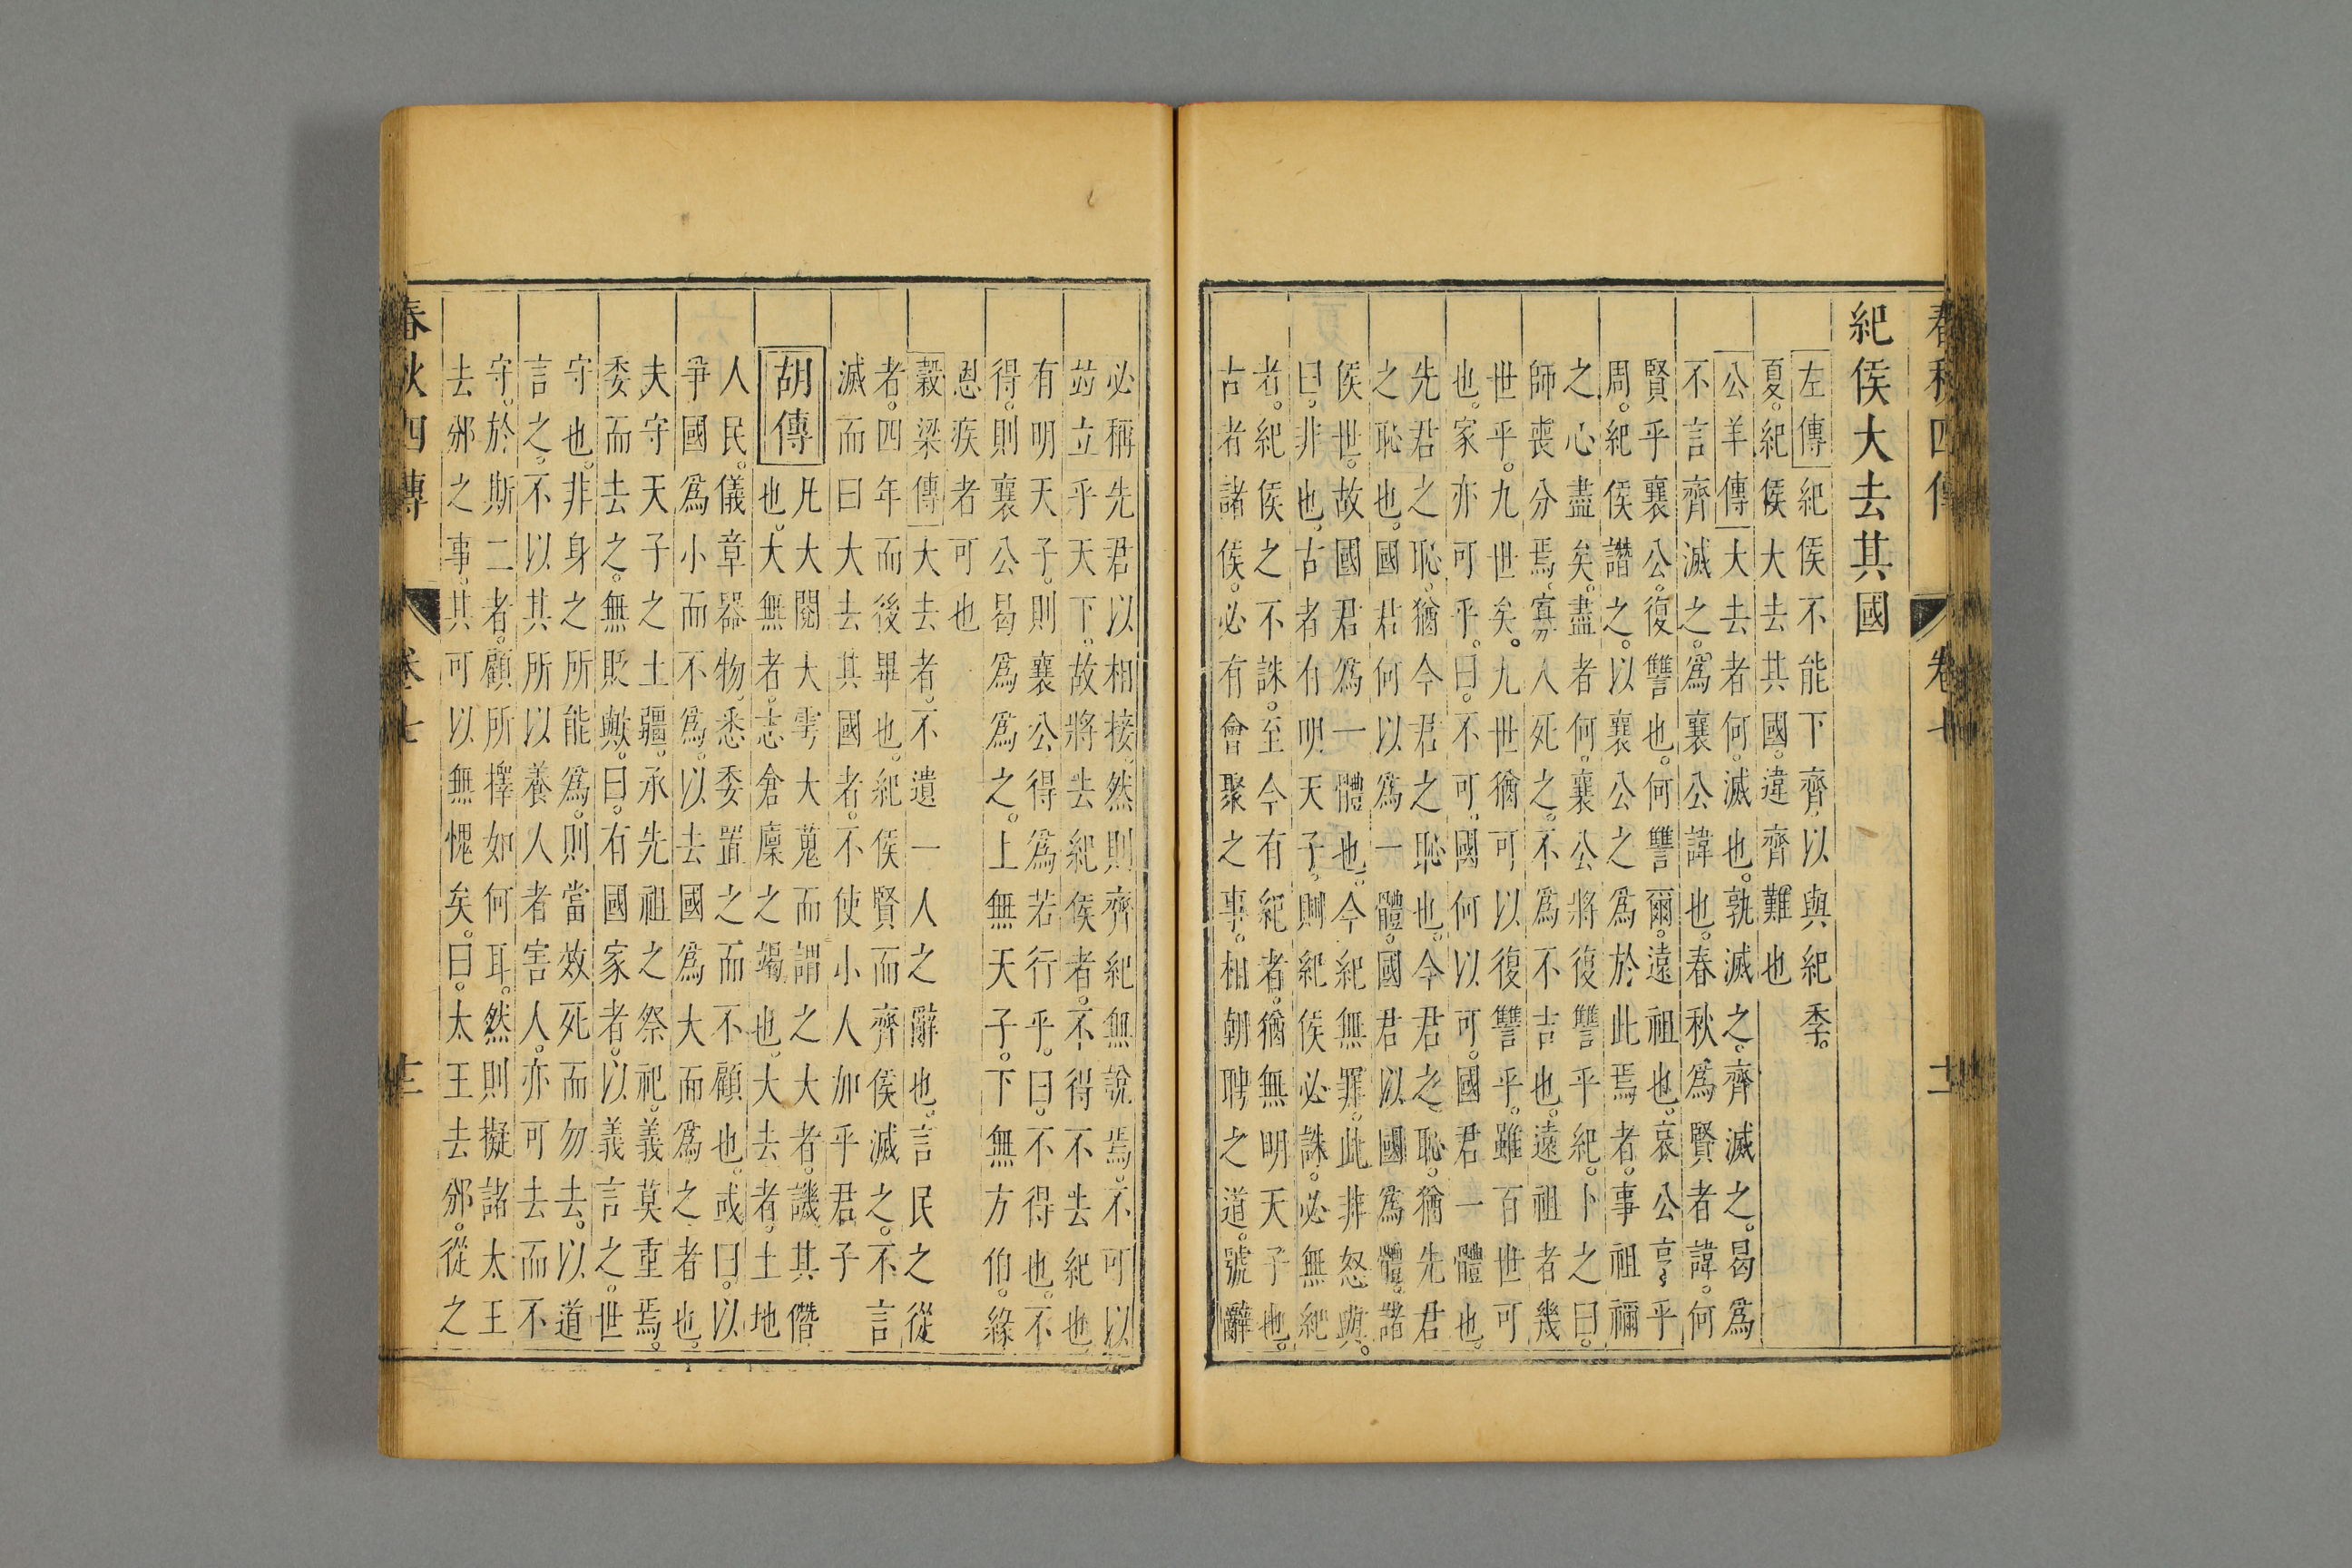 春秋四傳 卷七 十二
紀侯大去其國
左傳紀侯不能下齊以與紀季
夏紀侯大去其國違齊難也
公羊傳大去者何滅也孰滅之齊滅之曷爲
不言齊滅之爲襄公諱也春秋爲賢者諱何
賢乎襄公復讐也何讐爾遠祖也哀公亨乎
周紀侯譖之以襄公之爲於此焉者事祖禰
之心盡矣盡者何襄公將復讐乎紀卜之曰
師喪分焉寡人死之不爲不吉也遠祖者幾
世乎九世矣九世猶可以復讐乎雖百世可
也家亦可乎曰不可國何以可國君一體也
先君之恥猶今君之恥也今君之恥猶先君
之恥也國君何以爲一體國君以國爲體諸
侯世故國君爲一體也今紀無罪此非怒與
曰非也古者有明天子則紀侯必誅必無紀
者紀侯之不誅至今有紀者猶無明天子也
古者諸侯必有會聚之事相朝聘之道號辭
必稱先君以相接然則齊紀無說焉不可以
竝立乎天下故將去紀侯者不得不去紀也
有明天子則襄公得爲若行乎曰不得也不
得則襄公曷爲爲之上無天子下無方伯緣
恩疾者可也
穀梁傳大去者不遺一人之辭也言民之從
者四年而後畢也紀侯賢而齊侯滅之不言
滅而曰大去其國者不使小人加乎君子
胡傳凡大閱大雩大蒐而謂之大者譏其僭
也大無者志倉廩之竭也大去者土地
人民儀章器物悉委置之而不顧也或曰以
爭國爲小而不爲以去國爲大而爲之者也
夫守天子之土疆承先祖之祭祀義莫重焉
委而去之無貶歟曰有國家者以義言之世
守也非身之所能爲則當效死而勿去以道
言之不以其所以養人者害人亦可去而不
守於斯二者顧所擇如何耳然則擬諸太王
去邠之事其可以無愧矣曰太王去邠從之
春秋四傳 卷七 十二